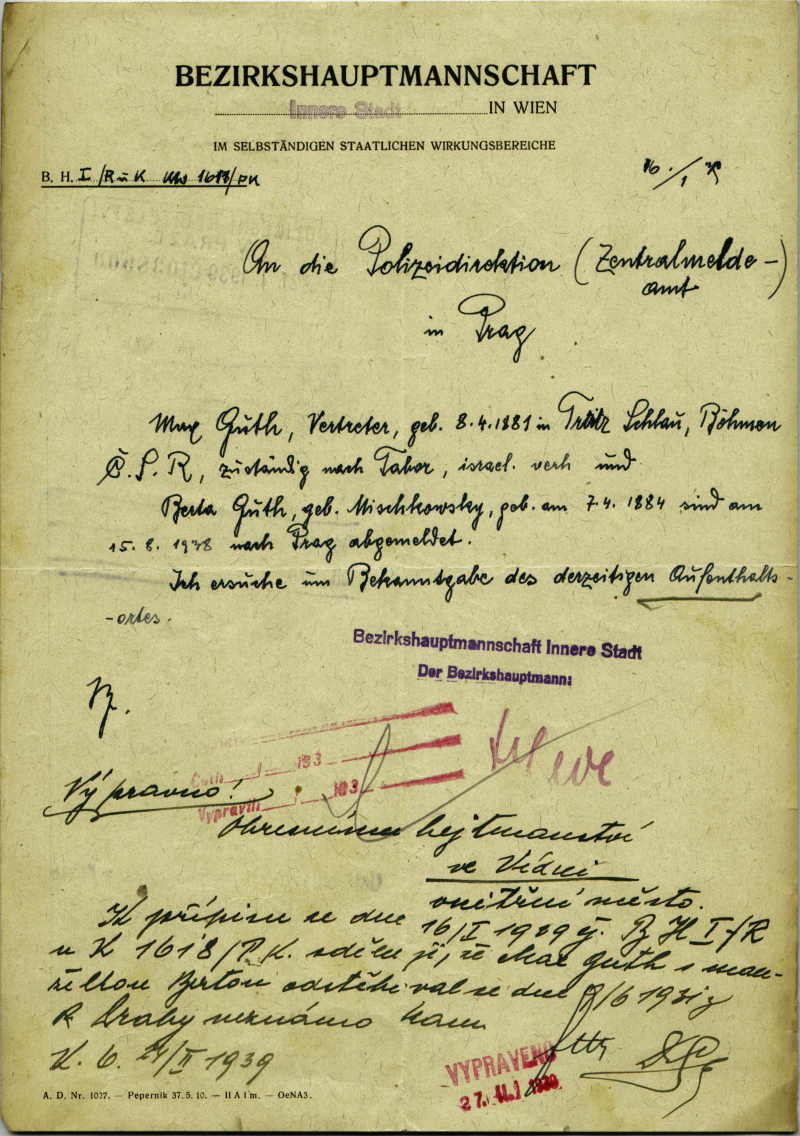 BEZIRKSHAUPTMANNSCHAFT
Innere Stadt IN WIEN
IM SELBSTÄNDIGEN STAATLICHEN WIRKUNGSBEREICHE
B. H. I/R u K 1618/PK
16./1 39
An die Polizeidirektion (Zentralmelde-
amt)
in Prag
Max Guth, Vertreter, geb. 8.4.1881 in Schlau, Böhmen
Č.S.R, zuständig nach Tabor, israel. verh und
Berta Guth, geb. Mischkowsky, geb. am 7.4.1884 sind am
15.8.1938 nach Prag abgemeldet.
Ich ersuche um Bekanntgabe des derzeitigen Aufenthalts-
-ortes.
Bezirkshauptmannschaft Innere Stadt
Der Bezirkshauptmann:
193
193
Vypravil
Výpravno!
Okresnímu hejtmanství
ve Vídni
vnitřní město.
K přípisu ze dne 16/I 1939 č. B H I/R
u K 1618/P.K. sděluji, že Max Guth s man-
želkou Bertou odstěhoval se dne
z Prahy neznámo kam
II 1939
VYPRAVENO
27. II. 1939
A. D. Nr. 1027. — Pepernik 37.5.10. — II A I m. — OeNA3.